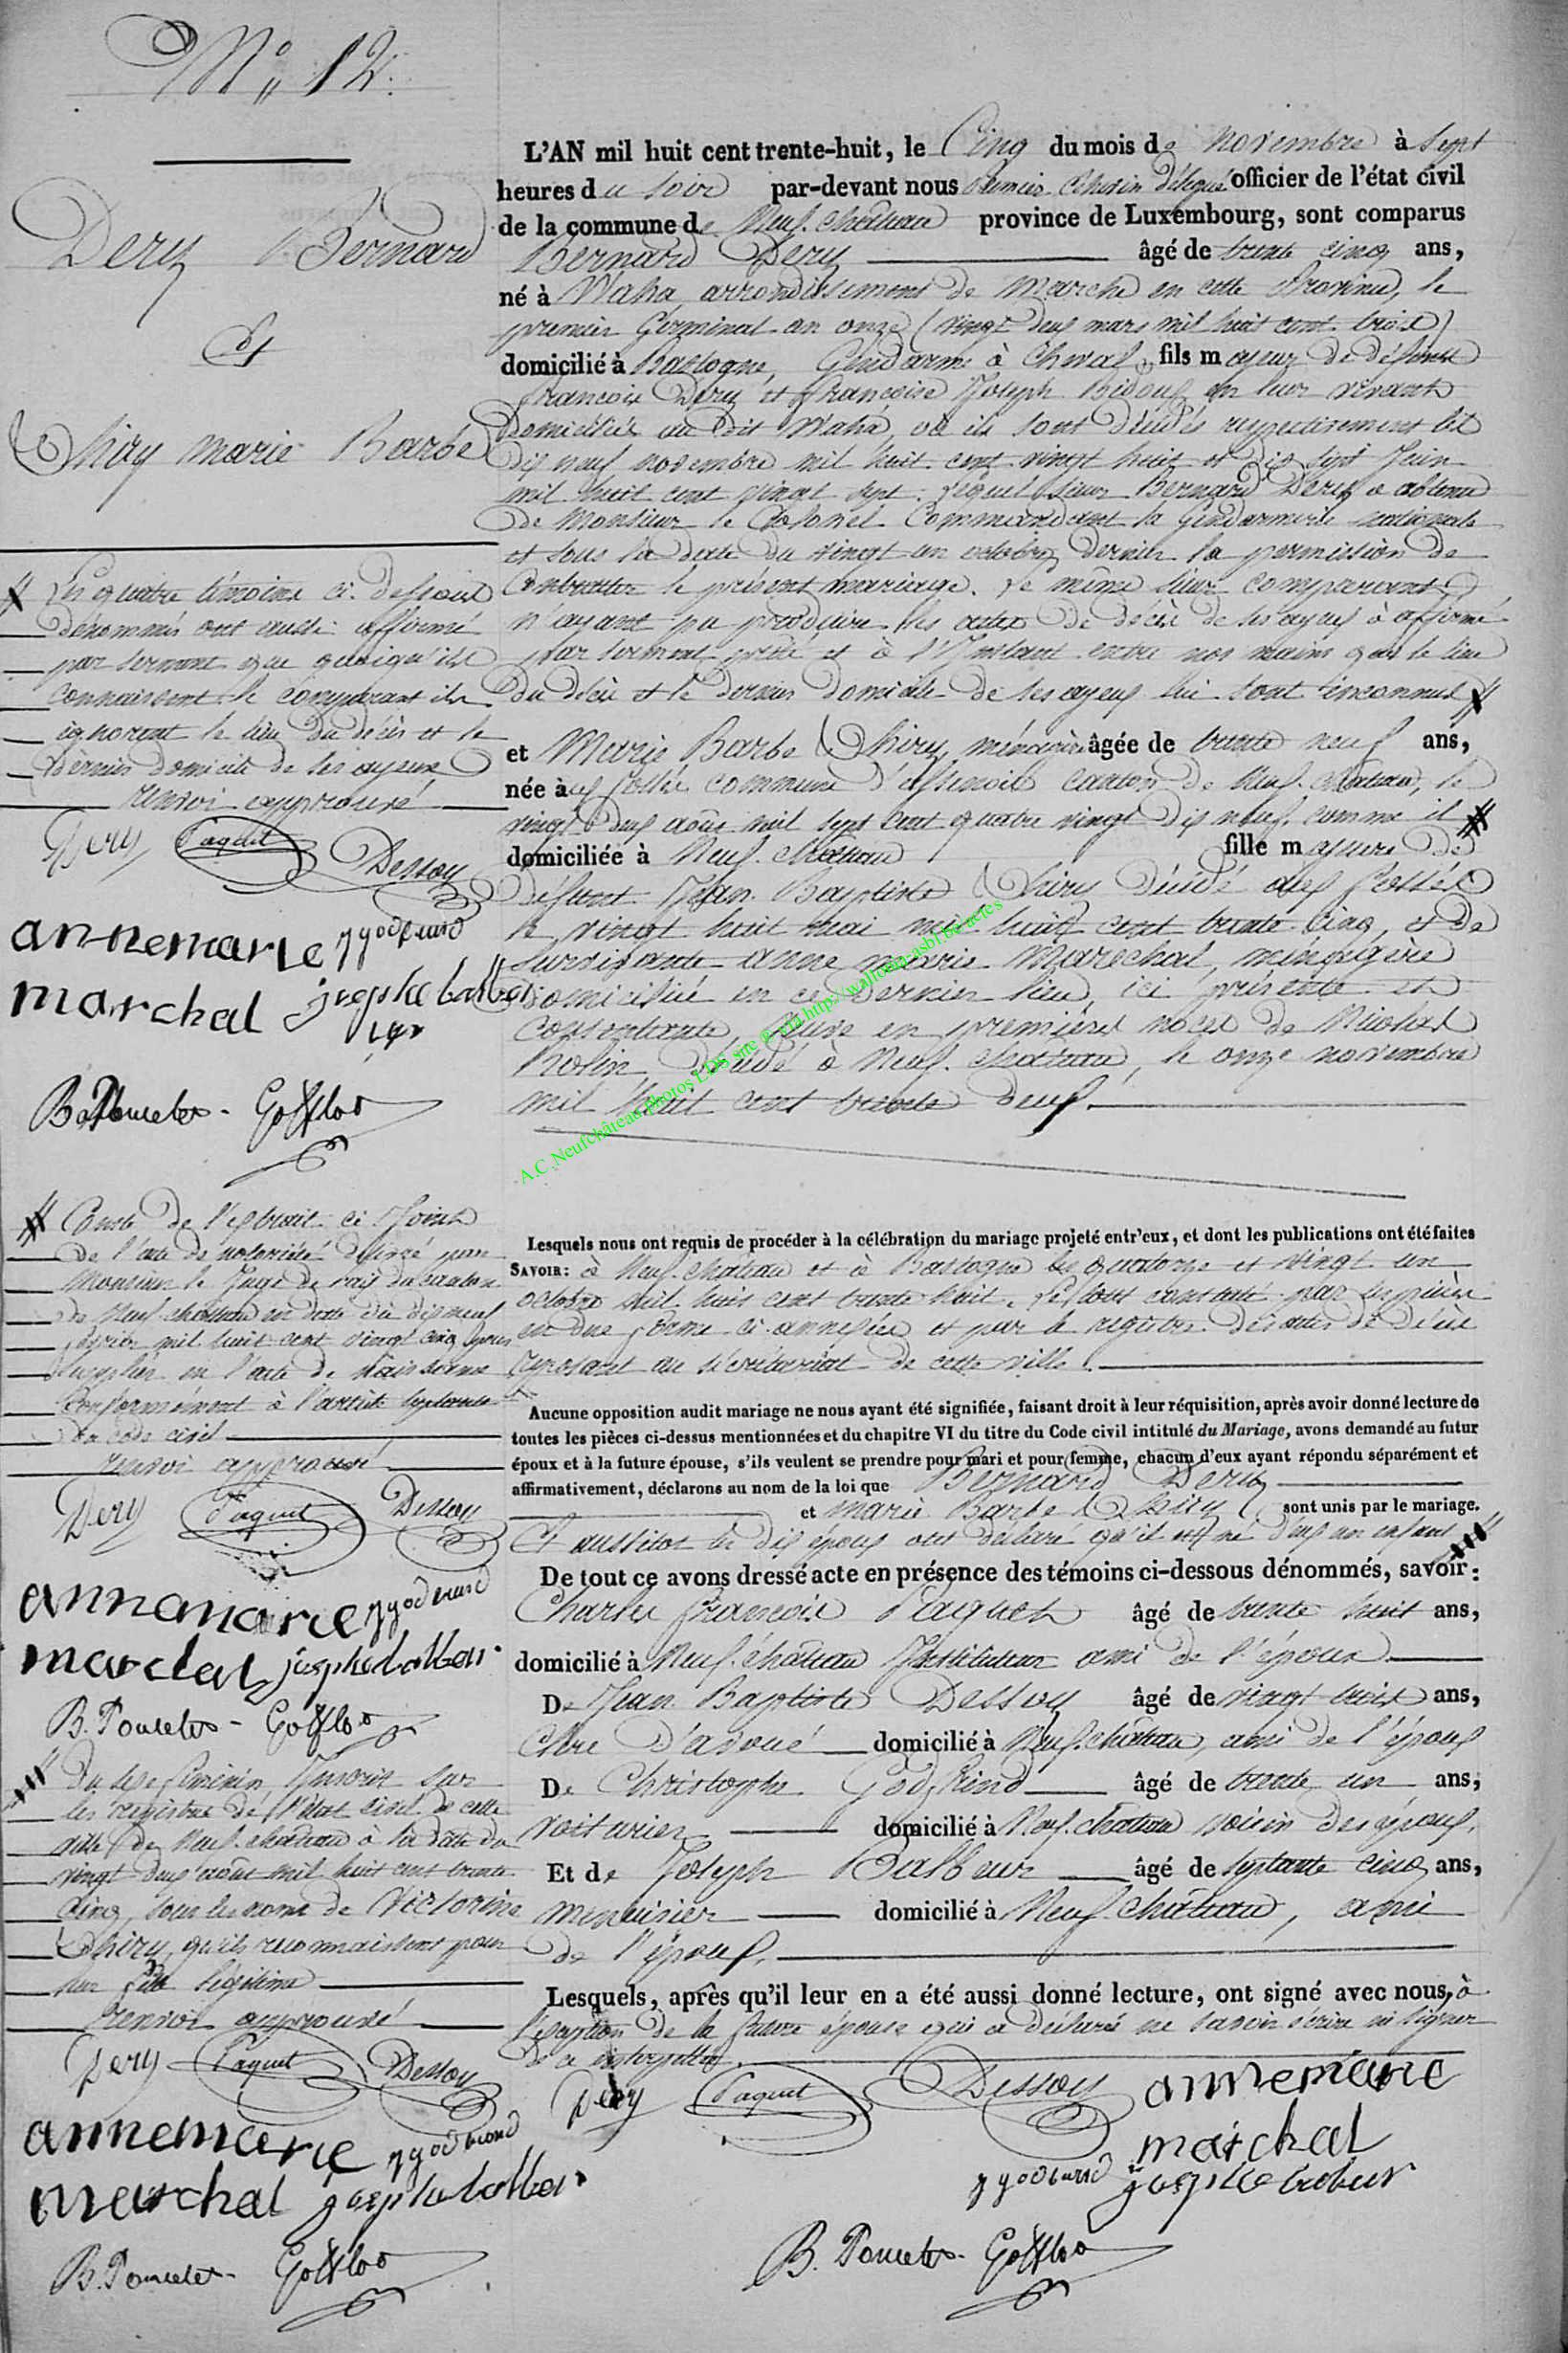 N° 12.
Dery Bernard
et
Thiry Marie Barbe
L'AN mil huit cent trente-huit, le Cinq du mois de novembre à Sept
heures du soir par-devant nous Premier Echevin délégué officier de l'état civil
de la commune de Neufchâteau province de Luxembourg, sont comparus
Bernard Dery âgé de trente cinq ans,
né à Waha, arrondissement de Marche en cette Province, le
premier Germinal an onze (vingt deux mars mil huit cent trois)
domicilié à Bastogne, Gendarme à cheval, fils majeur de défunt
François Dery et Françoise Joseph en leur vivant
domiciliés au dit Waha, où ils sont décédés respectivement les
dix neuf novembre mil huit cent vingt huit et dix sept Juin
mil huit cent vingt sept. lequel sieur Bernard Dery a obtenu
de Monsieur le Colonel Commandant la Gendarmerie nationale
et sous la date du vingt un octobre dernier la permission de
Contracter le présent mariage. Le même sieur comparant
n'ayant pu produire les actes de décès de ses ayeux a affirmé
par serment prêté et à l'Instant entre nos mains que le lieu
du décès et le dernier domicile de ses ayeux lui sont inconnus #
et Marie Barbe Thiry, ménagère âgée de trente neuf ans,
née aux fossés commune d'assenois canton de Neufchâteau, le
vingt deux août mil sept cent quatre vingt dix neuf. comme il #
domiciliée à Neufchâteau fille majeure de
défunt Jean Baptiste Thiry décédé aux fossés
le vingt huit mai mil huit cent trente cinq et de
survivante anne marie Marechal, ménagère
domiciliée en ce dernier lieu, ici présente et
consentante, veuve en premières noces de Nicolas
décédé à Neufchâteau, le onze novembre
mil huit cent trente deux.
A.C. Neufchâteau Photos LDS site @ via http://wallonia-asbl.be/actes
Lesquels nous ont requis de procéder à la célébration du mariage projeté entr'eux, et dont les publications ont été faites
SAVOIR: à Neufchâteau et à Bastogne les quatorze et vingt un
octobre mil huit cent trente huit. Le tout constaté par les pièces
en due forme ci-annexées et par le registre des actes de décès
reposant au secrétariat de cette ville.
Aucune opposition audit mariage ne nous ayant été signifiée, faisant droit à leur réquisition, après avoir donné lecture de
toutes les pièces ci-dessus mentionnées et du chapitre VI du titre du Code civil intitulé du Mariage, avons demandé au futur
époux et à la future épouse, s'ils veulent se prendre pour mari et pour femme, chacun d'eux ayant répondu séparément et
affirmativement, déclarons au nom de la loi que Bernard Dery
et marie Barbe Thiry sont unis par le mariage.
Et aussitôt les dix époux ont déclaré qu'il est né d'eux un enfant
De tout ce avons dressé acte en présence des témoins ci-dessous dénommés, savoir:
Charles François Paquet âgé de trente huit ans,
domicilié à Neufchâteau Instituteur ami de l'époux
De Jean Baptiste Dessoy âgé de vingt trois ans,
Clerc d'avoué domicilié à Neufchâteau, ami de l'époux
De Christophe Godfrind âgé de trente un ans,
voiturier domicilié à Neufchâteau voisin des époux,
Et de Joseph Balbeur âgé de septante cinq ans,
menuisier domicilié à Neufchâteau, ami
de l'époux.
Lesquels, après qu'il leur en a été aussi donné lecture, ont signé avec nous, à
l'exception de la future épouse qui a déclaré ne savoir écrire ni signer
de ce interpellée.
Dery Paquet Dessoy annemarie
marchal
B. Poncelet
# Les quatre témoins ci-dessous
dénommés ont aussi affirmé
par serment que quoiqu'ils
connaissent le comparant ils
ignorent le lieu du décès et le
dernier domicile de ses ayeux
renvoi approuvé
Dery Paquet Dessoy
annemarie
marchal
B. Poncelet
# Conste de l'extrait ci Joint
de l'acte de notoriété délivré par
Monsieur le Juge de paix du canton
de Neufchâteau en date du dix neuf
février mil huit cent vingt cinq pour
suppléer en l'acte de naissance
Conformément à l'article septante
du code civil
renvoi approuvé
Dery Paquet Dessoy
annamarie
marchal
B. Poncelet
Du sexe féminin Inscrit sur
les registres de l'état civil de cette
ville de Neufchâteau à la date du
vingt deux août mil huit cent trente
cinq, sous les noms de Victorine
Thiry, qu'ils reconnaissent pour
leur fille légitime
renvoi approuvé
Dery Paquet Dessoy
annemarie
marchal
B. Poncelet